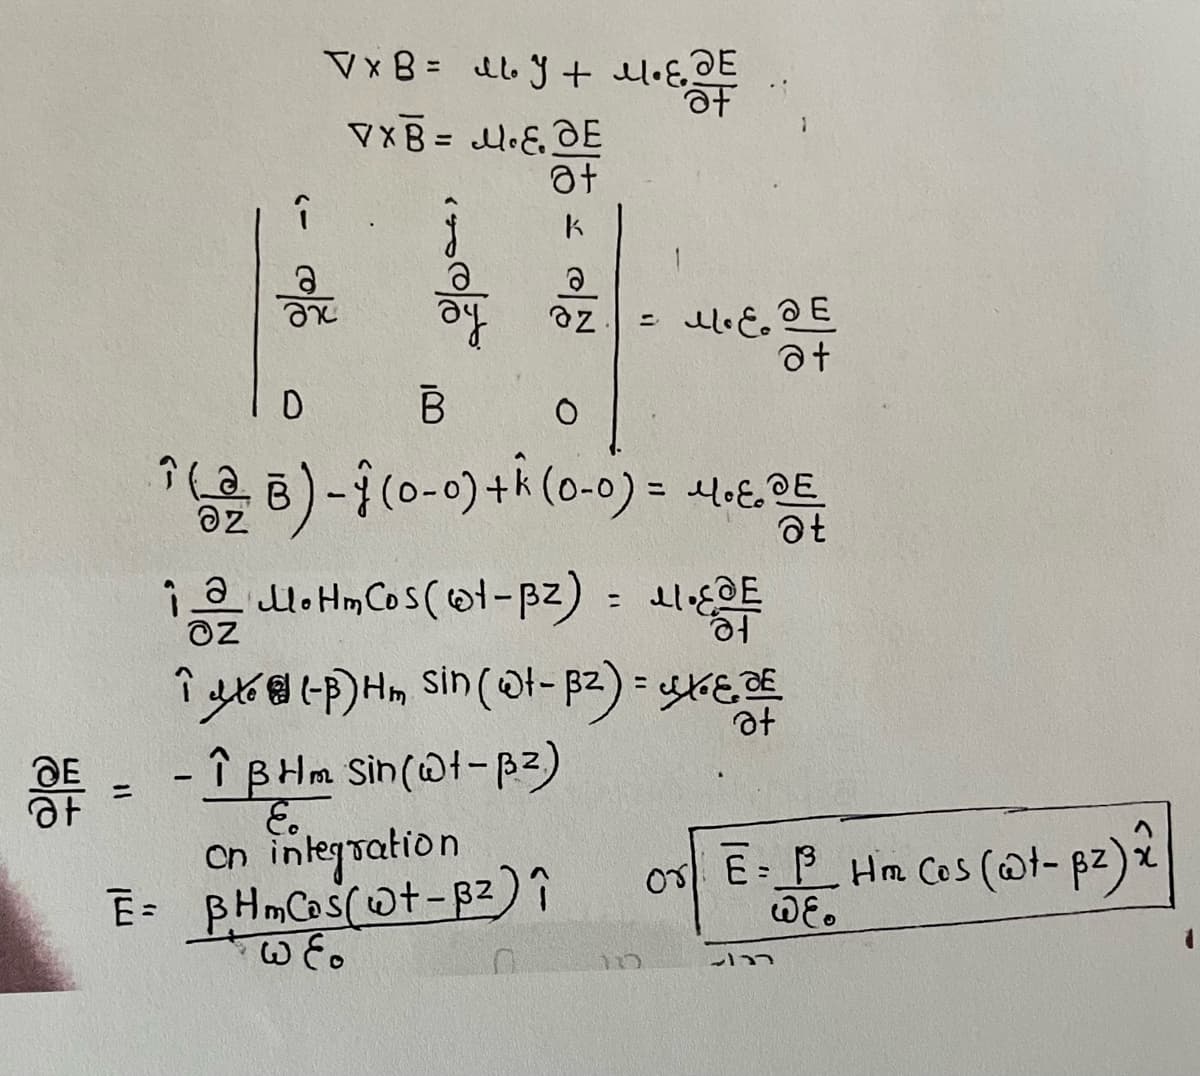 ∇ x B = μ₀ y + μ₀ε₀ ∂E/∂t
∇ x B̄ = μ₀ε₀ ∂E/∂t
| î ĵ k |
| ∂/∂x ∂/∂y ∂/∂z | = μ₀ε₀ ∂E/∂t
| 0 B̄ 0 |
î (∂/∂z B̄) - ĵ (0-0) + k̂ (0-0) = μ₀ε₀ ∂E/∂t
î ∂/∂z μ₀ Hm Cos(ωt-βz) = μ₀ε₀ ∂E/∂t
î μ₀ (-β) Hm sin(ωt-βz) = μ₀ε₀ ∂E/∂t
∂E/∂t = - î β Hm sin(ωt-βz)/ε₀
on integration
Ē = β Hm Cos(ωt-βz)/ωε₀ î or Ē = β/ωε₀ Hm Cos(ωt-βz) x̂